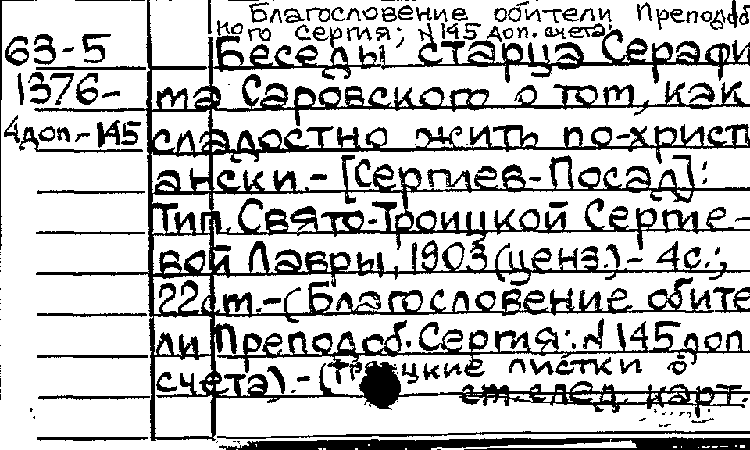 Благословение обители Преподоб
ного Сергия; N 145 доп. счета.
63-5 Беседы старца Серафи
1376- ма Саровского о том, как
4доп-145 сладостно жить по-христи
ански.-[Сергиев-Посад]:
Тип. Свято-Троицкой Сергие-
вой Лавры, 1903(ценз.)-4с.;
22см.-(Благословение обите
ли Преподоб. Сергия: N 145доп
счета).-(Троицкие листки о
см. след. карт.